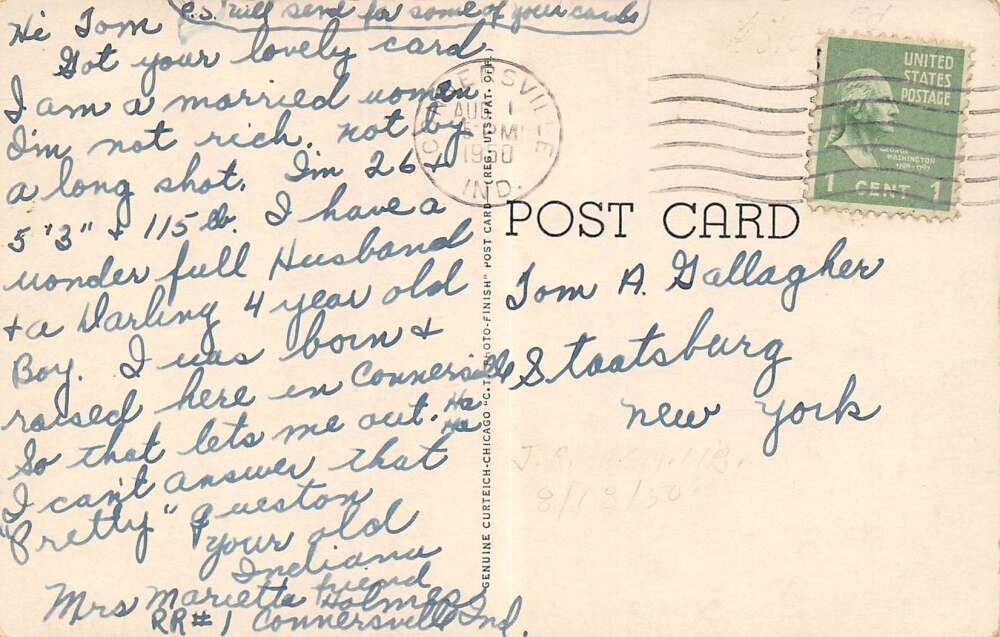 P.S. I will send for some of your cards
Hi Tom
Got your lovely card
I am a married women
I'm not rich. not by
a long shot. I'm 26 +
5'3" + 115 lb. I have a
wonder full Husband
+ a Darling 4 year old
Boy. I was born +
raised here in Connersville
So that lets me out. Ha Ha
I can't answer that
"Pretty" queston
your old
Indiana
friend
Mrs Marietta Holmes
RR#1 Connersville Ind.
GENUINE CURTEICH-CHICAGO "C.T. PHOTO-FINISH" POST CARD (REG. U.S. PAT. OFF.)
CONNERSVILLE
AUG 1
PM
1950
IND.
UNITED
STATES
POSTAGE
GEORGE
WASHINGTON
1789-1797
1 CENT 1
POST CARD
Tom A. Gallagher
Staatsburg
New York
8/18/50